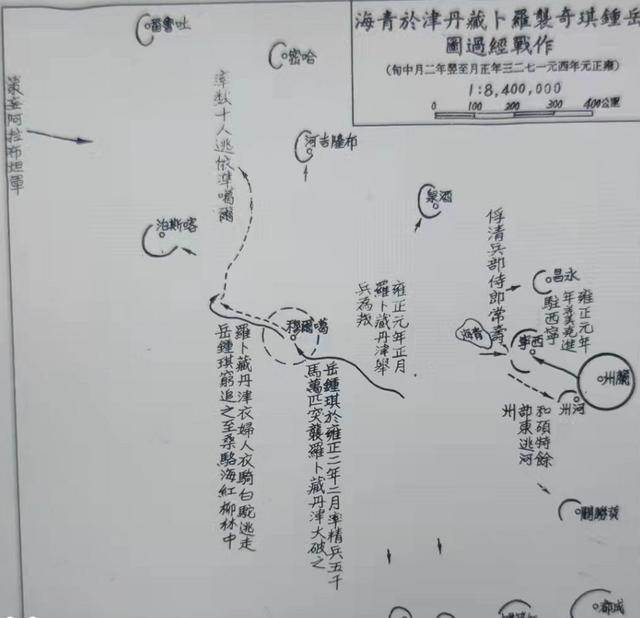 岳鍾琪奇襲羅卜藏丹津於青海
作戰經過圖
(雍正元年西元一七二三年正月至翌年二月中旬)
1:8,400,000
0 100 200 300 400公里
吐魯番
哈密
策妄阿拉布坦軍
率數十人逃依準噶爾
布隆吉河
酒泉
喀斯泊
俘清兵部侍郎常壽
永昌
雍正元年
年羹堯進
駐西寧
雍正元年正月
羅卜藏丹津舉
兵為叛
青海
西寧
噶爾穆
蘭州
河州
和碩特餘
部東逃河
州
岳鍾琪於雍正二年二月率精兵五千
馬萬匹突襲羅卜藏丹津大破之
羅卜藏丹津衣婦人衣騎白駝逃走
岳鍾琪窮追之至桑駱海紅柳林中
成都